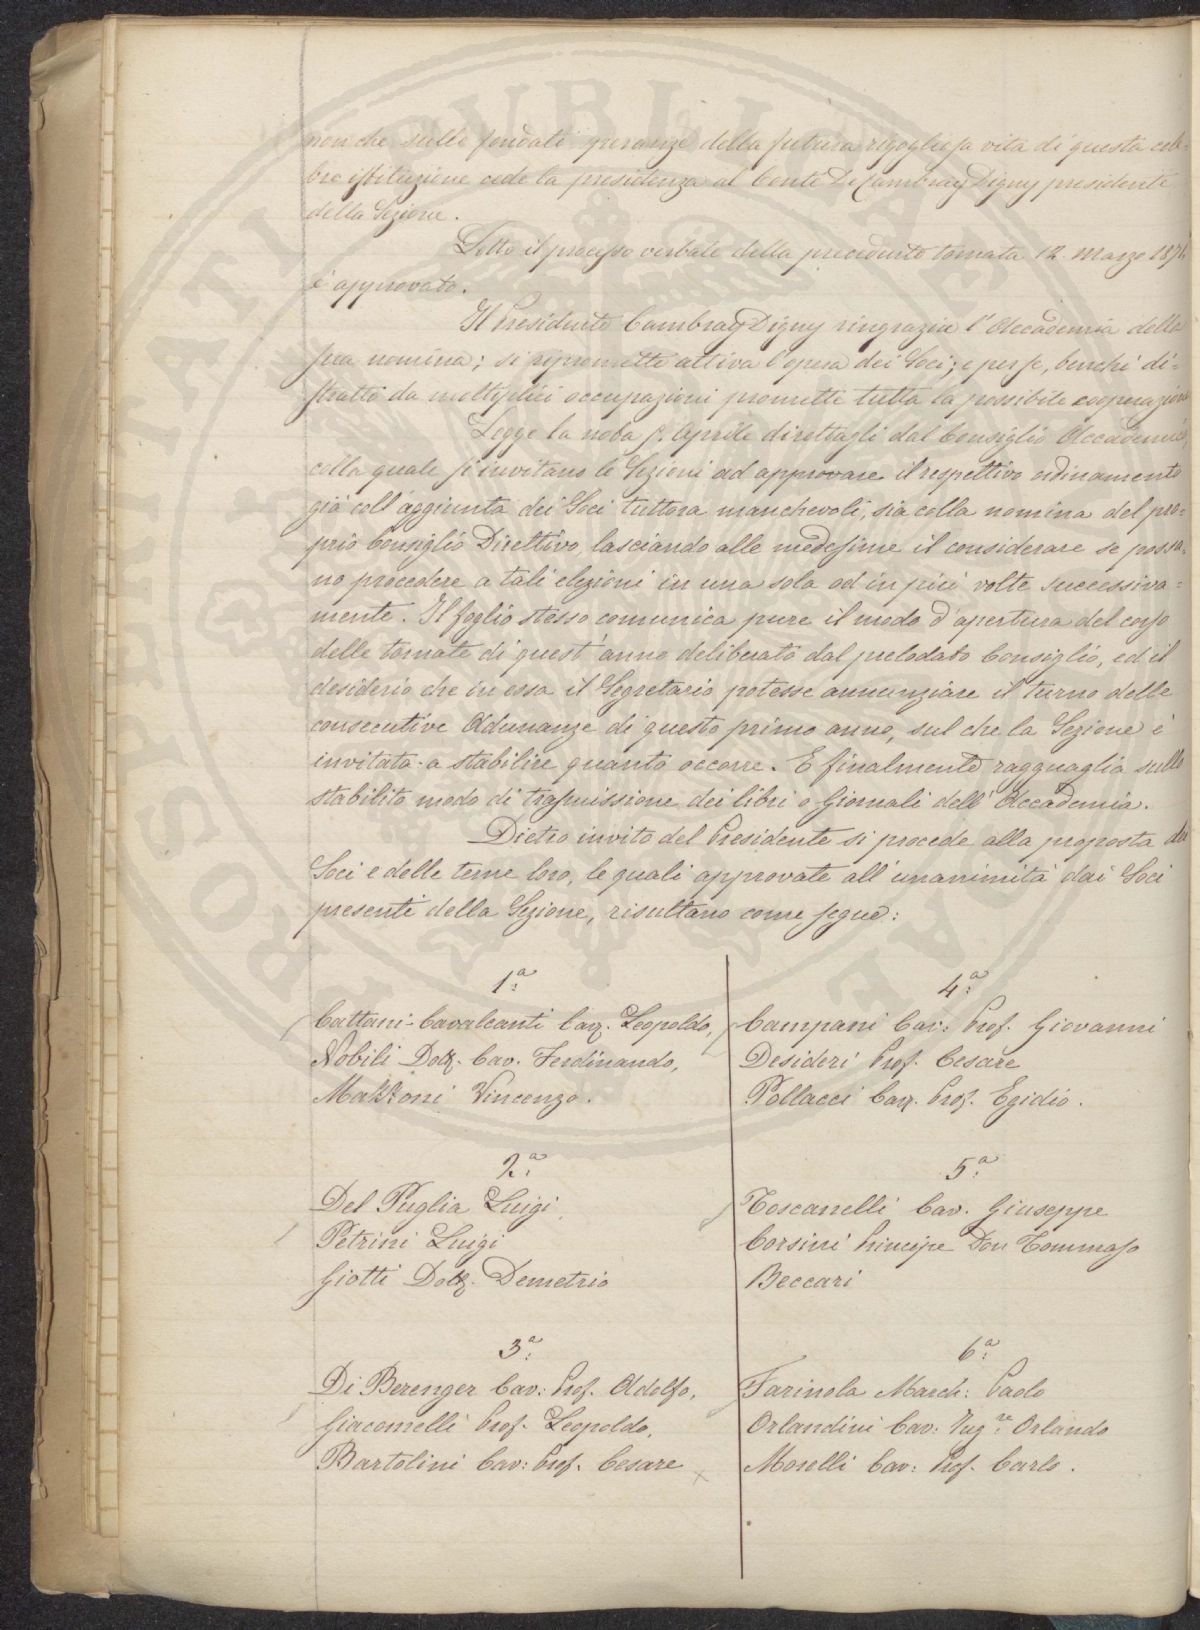 nonchè sulle fondate speranze della futura rigogliosa vita di questa cele-
bre istituzione cede la presidenza al Conte De Cambray Digny presidente
della Sezione.
Letto il processo verbale della precedente tornata 12. Marzo 1871
è approvato.
Il Presidente Cambray Digny ringrazia l'Accademia della
sua nomina; si ripromette attiva l'opera dei Soci; e per se, benchè di-
stratto da molteplici occupazioni promette tutta la possibile cooperazione
Legge la nota Aprile direttagli dal Consiglio Accademico,
colla quale si invitano le Sezioni ad approvare il respettivo ordinamento
già coll'aggiunta dei Soci tuttora manchevoli, sia colla nomina del pro-
prio Consiglio Direttivo, lasciando alle medesime il considerare se possa-
no procedere a tali elezioni in una sola od in più volte successiva-
mente. Il foglio stesso comunica pure il modo d'apertura del corso
delle tornate di quest'anno deliberato dal prelodato Consiglio, ed il
desiderio che in essa il Segretario potesse annunziare il turno delle
consecutive Adunanze di questo primo anno, sul che la Sezione è
invitata a stabilire quanto occorre. E finalmente ragguaglia sullo
stabilito modo di trasmissione dei libri o Giornali dell'Accademia.
Dietro invito del Presidente si procede alla proposta dei
Soci e delle terne loro, le quali approvate all'unanimità dai Soci
presenti della Sezione, risultano come segue:
1.ª
Cattani-Cavalcanti Cav. Leopoldo,
Nobili Dott. Cav. Ferdinando,
Mazzoni Vincenzo.
2.ª
Del Puglia Luigi,
Petrini Luigi
Giotti Dott. Demetrio
3.ª
Di Berenger Cav: Prof. Adolfo,
Giacomelli Prof. Leopoldo,
Bartolini Cav: Prof. Cesare
4.ª
Campani Cav: Prof. Giovanni
Desideri Prof. Cesare
Pollacci Cav. Prof. Egidio.
5.ª
Toscanelli Cav. Giuseppe
Corsini Principe Don Tommaso
Beccari
6.ª
Farinola March: Paolo
Orlandini Cav: Ing.re Orlando
Morelli Cav: Prof. Carlo.